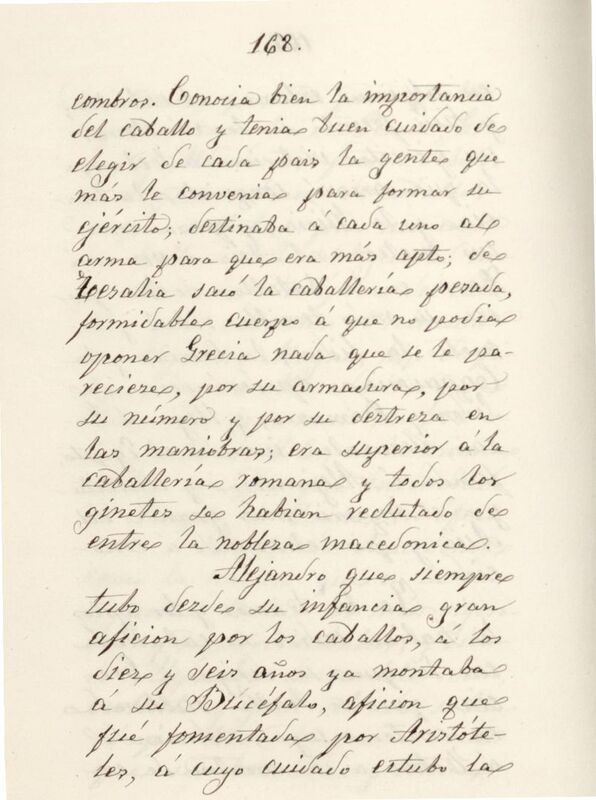 168.
combros. Conocia bien la importancia
del caballo y tenia buen cuidado de
elegir de cada pais la gente que
más le convenia para formar su
ejército; destinaba á cada uno al
arma para que era más apto; de
Tezalia sacó la caballería pesada,
formidable cuerpo á que no podia
oponer Grecia nada que se le pa-
reciese, por su armadura, por
su número y por su destreza en
las maniobras; era superior á la
caballería romana y todos los
ginetes se habian reclutado de
entre la nobleza macedonica.
Alejandro que siempre
tubo desde su infancia gran
aficion por los caballos, á los
diez y seis años ya montaba
á su Bucéfalo, aficion que
fué fomentada por Aristóte-
les, á cuyo cuidado estubo la